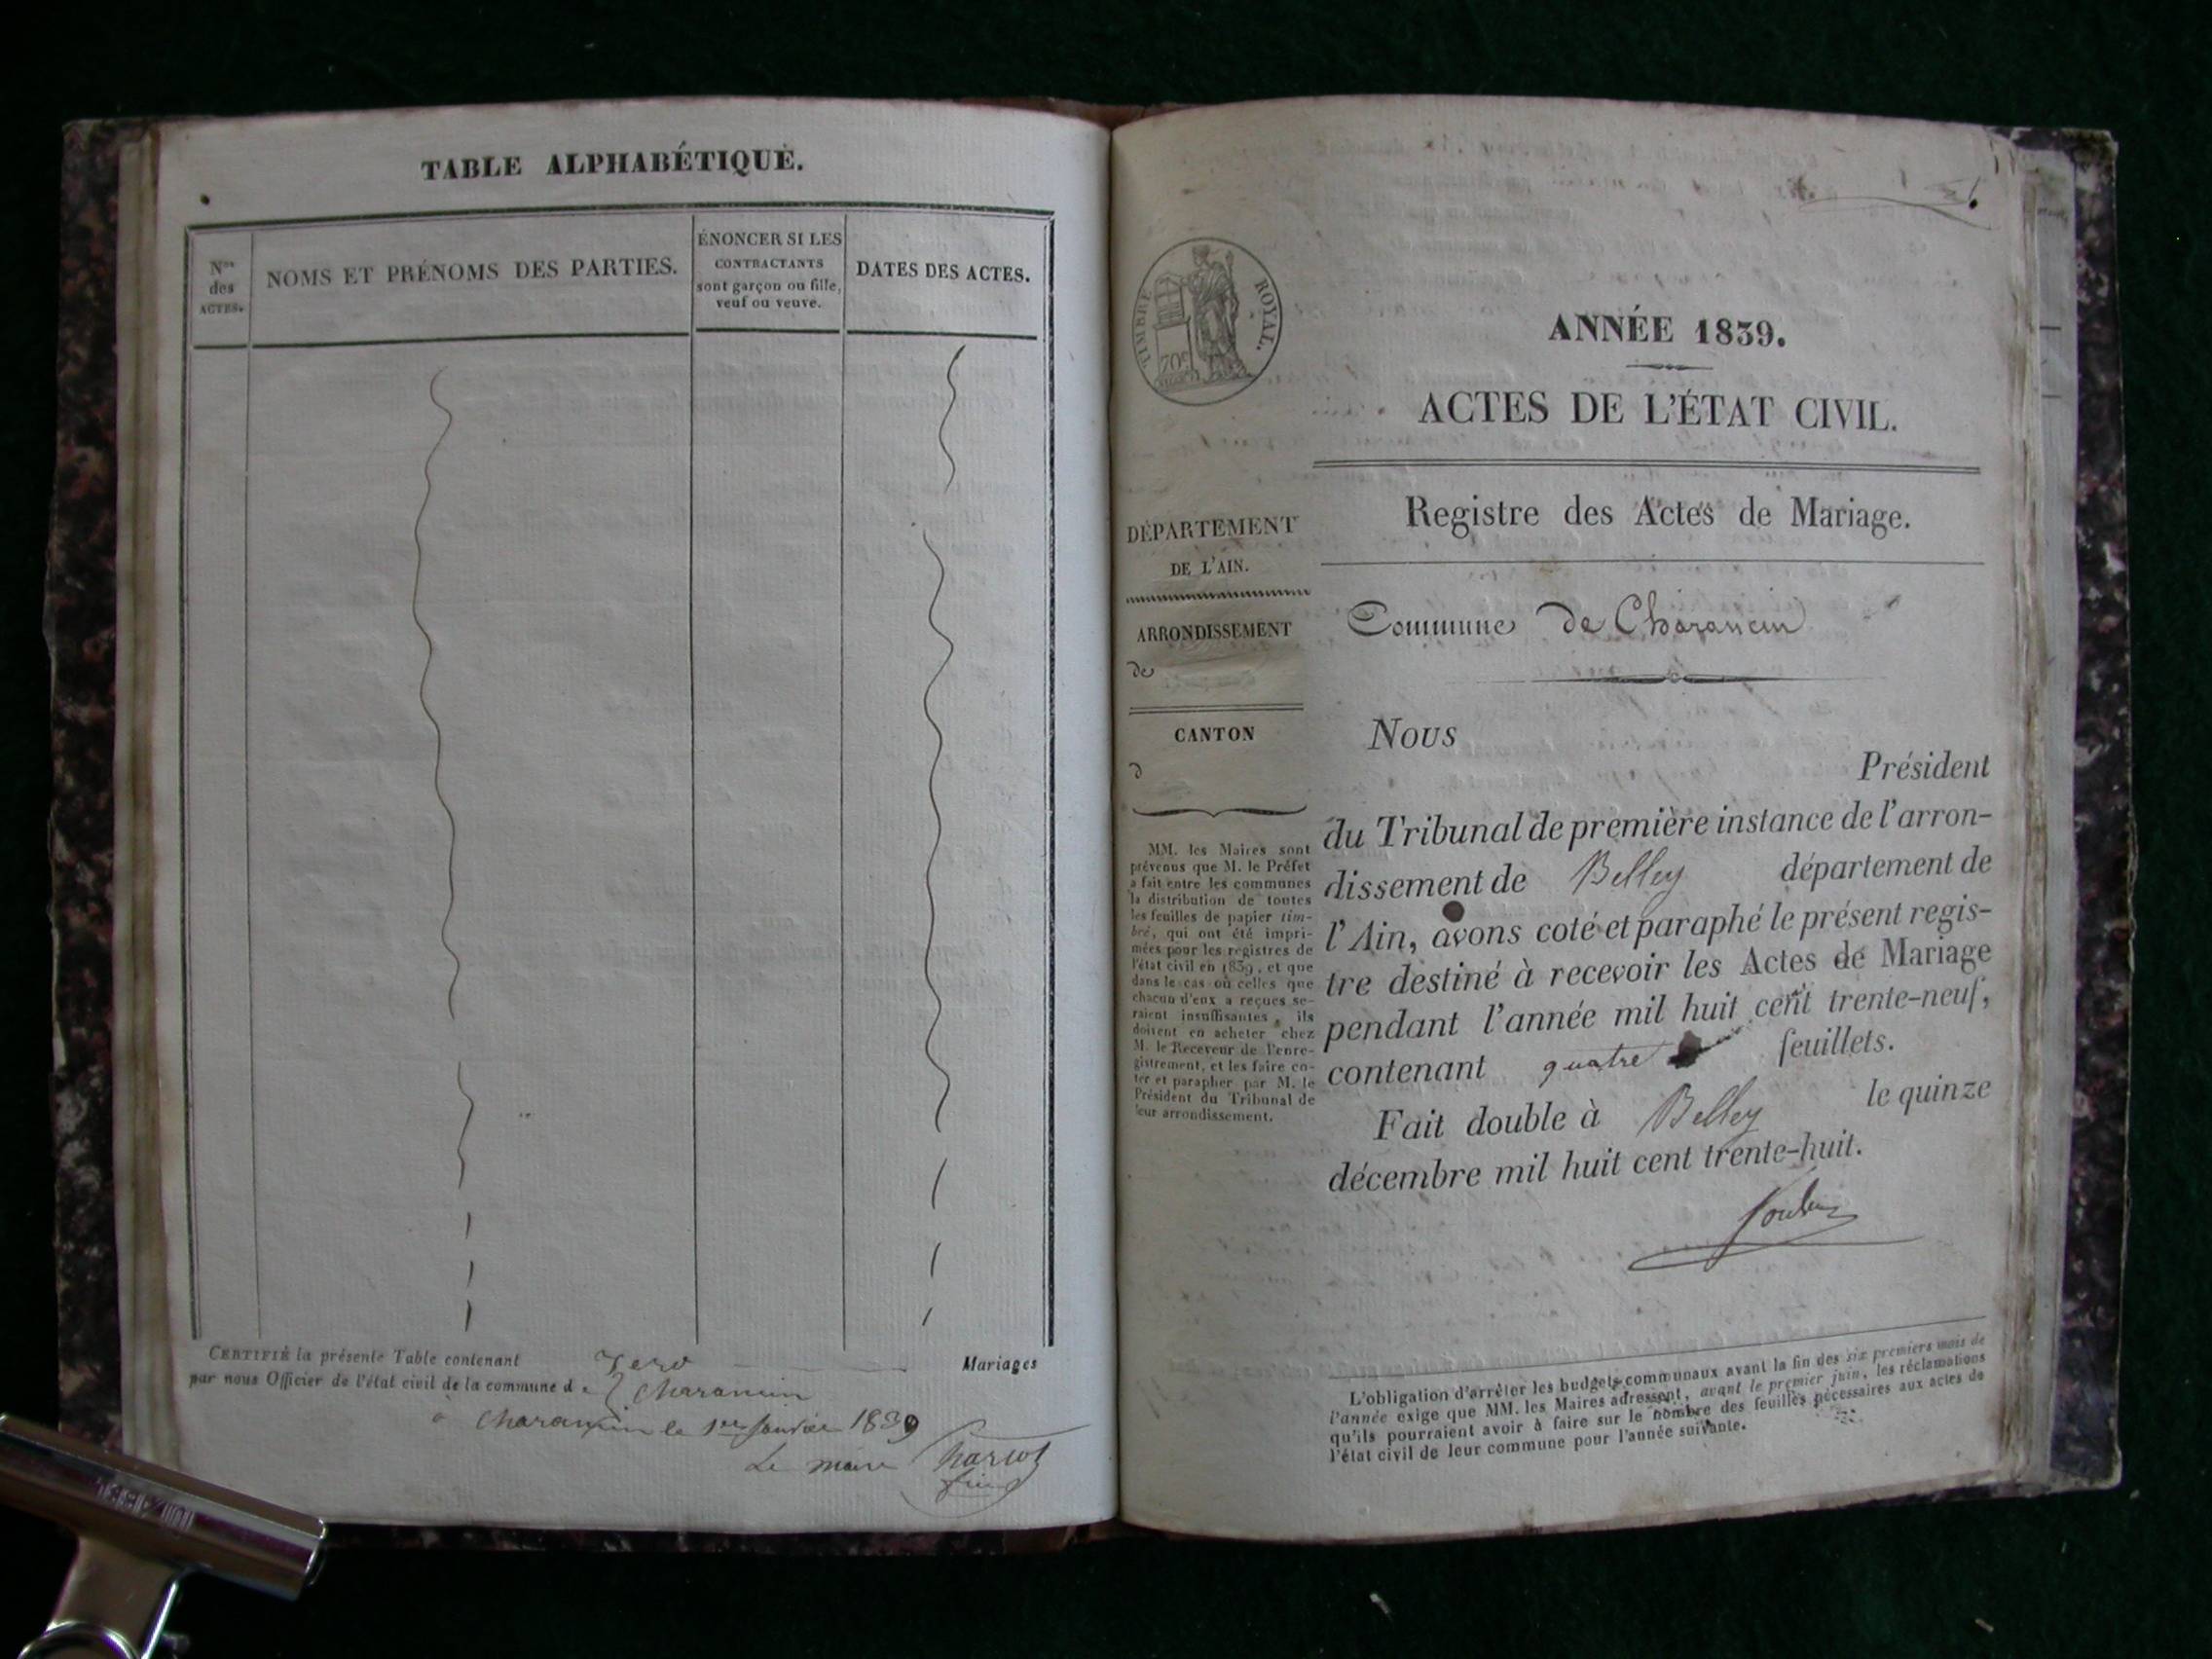 TABLE ALPHABÉTIQUE.
Nos des ACTES.
NOMS ET PRÉNOMS DES PARTIES.
ÉNONCER SI LES
CONTRACTANTS
sont garçon ou fille,
veuf ou veuve.
DATES DES ACTES.
CERTIFIÉ la présente Table contenant Zero Mariages
par nous Officier de l'état civil de la commune de Charancin
à Charancin le 1er Janvier 1839
Le maire
TIMBRE ROYAL.
70c
ANNÉE 1839.
ACTES DE L'ÉTAT CIVIL.
Registre des Actes de Mariage.
DÉPARTEMENT
DE L'AIN.
ARRONDISSEMENT
de
CANTON
d
MM. les Maires sont
prévenus que M. le Préfet
a fait entre les communes
la distribution de toutes
les feuilles de papier tim-
bré, qui ont été impri-
mées pour les registres de
l'état civil en 1839, et que
dans le cas où celles que
chacun d'eux a reçues se-
raient insuffisantes, ils
doivent en acheter chez
M. le Receveur de l'enre-
gistrement, et les faire co-
ter et parapher par M. le
Président du Tribunal de
leur arrondissement.
Commune de Charancin
Nous
Président
du Tribunal de première instance de l'arron-
dissement de Belley département de
l'Ain, avons coté et paraphé le présent regis-
tre destiné à recevoir les Actes de Mariage
pendant l'année mil huit cent trente-neuf,
contenant quatre feuillets.
Fait double à Belley le quinze
décembre mil huit cent trente-huit.
L'obligation d'arrêter les budgets communaux avant la fin des six premiers mois de
l'année exige que MM. les Maires adressent, avant le premier juin, les réclamations
qu'ils pourraient avoir à faire sur le nombre des feuilles nécessaires aux actes de
l'état civil de leur commune pour l'année suivante.